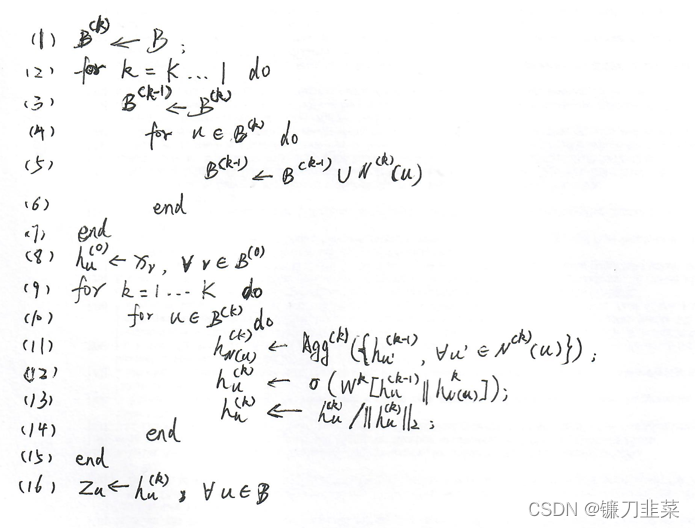 (1) B^(k) ← B ;
(2) for k = K ... 1 do
(3) B^(k-1) ← B^(k)
(4) for u ∈ B^(k) do
(5) B^(k-1) ← B^(k-1) ∪ N^(k)(u)
(6) end
(7) end
(8) h_u^(0) ← x_v , ∀ v ∈ B^(0)
(9) for k = 1 ... K do
(10) for u ∈ B^(k) do
(11) h_N(u)^(k) ← Agg^(k)({h_u'^(k-1) , ∀u' ∈ N^(k)(u)}) ;
(12) h_u^(k) ← σ(W^k[h_u^(k-1) || h_N(u)^k]);
(13) h_u^(k) ← h_u^(k) / ||h_u^(k)||_2 ;
(14) end
(15) end
(16) Z_u ← h_u^(k) , ∀ u ∈ B
CSDN @镰刀韭菜